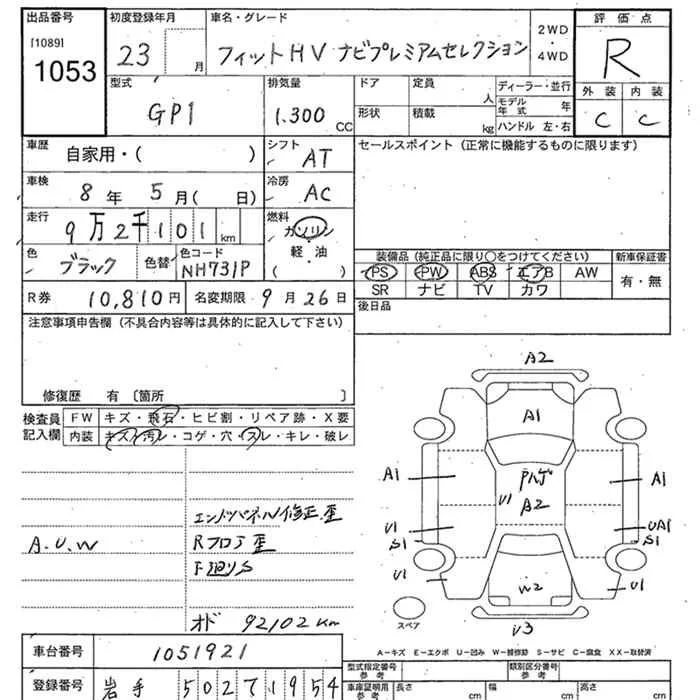 出品番号 初度登録年月 車名・グレード 2WD・4WD 評価点
[1089]
1053 23 月 フィットHV ナビプレミアムセレクション R
型式 排気量 ドア 定員 人 ディーラー・並行 外装 内装
GP1 1.300 CC 形状 積載 kg モデル年式 年 C C
ハンドル 左・右
車歴 自家用・( ) シフト AT セールスポイント (正常に機能するものに限ります)
車検 8年 5月( 日) 冷房 AC
走行 9万2千101km 燃料 ガソリン
軽油
( )
色 ブラック 色替 色コード NH731P 装備品 (純正品に限り○をつけてください) 新車保証書
PS PW ABS エアB AW 有・無
SR ナビ TV カワ
R券 10,810円 名変期限 9月26日 後日品
注意事項申告欄 (不具合内容等は具体的に記入して下さい)
修復歴 有 〔箇所 〕
検査員記入欄 FW キズ・飛石・ヒビ割・リペア跡・X要
内装 キズ・汚レ・コゲ・穴・スレ・キレ・破レ
エンドパネル修正.歪
A.U.W Rフロア歪
オド 92102km
A2
A1
A1 U1 A2 A1
U1 UA1
S1 S1
U1 W2 U1
スペア
A-キズ E-エクボ U-凹み W-補修跡 S-サビ C-腐食 XX-取替済
車台番号 1051921 型式指定番号 類別区分番号
登録番号 岩手 502 7 1954 車庫証明用参考 長さ cm 幅 cm 高さ cm